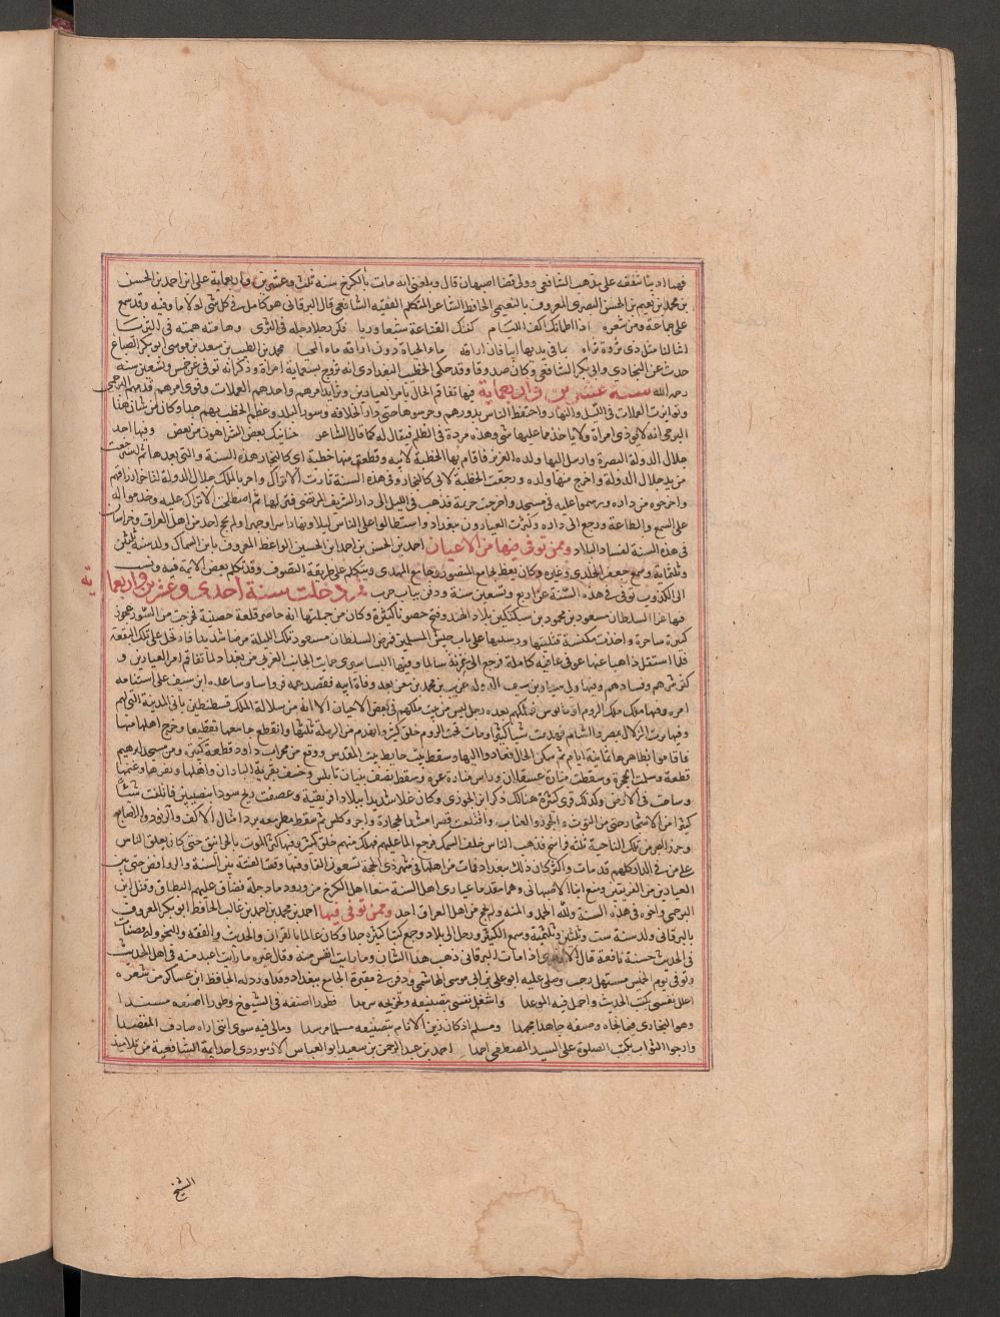 فهما اديبا تفقه على مذهب الشافعي وولي قضا اصبهان قال وبلغني انه مات بالكرخ سنة ثلث وعشرين واربعماية على ابن احمد بن الحسن
بن محمد بن نعيم بن الحسن البصري المعروف بالنعيمي الحافظ الشاعر المتكلم الفقيه الشافعي قال البرقاني هو كامل في كل شي لولا ما وفيه وقد سمع
على جماعة ومن شعره اذا اظماتك اكف اللئام كفتك القناعة شبعا وريا فكن رجلا رجله في الثرى وهامته همته في الثريا
ابيا لنا مثل ذي ثروة تراه بما في يديه ابيا فان اراقة ماء الحياة دون اراقة ماء المحيا محمد بن الطيب بن سعد بن موسى ابو بكر الصباغ
حدث عن النجاد وابي بكر الشافعي وكان صدوقا وقد حكى الخطيب البغدادي انه تزوج بتسعماية امراة وذكر انه توفي عن خمس وتسعين سنة
رحمه الله سنة عشرين واربعماية فيها تفاقم الحال بامر العيارين وتزايد امرهم واخذهم العملات وقوي امر مقدمهم البرجمي
وتواترت العملات في الليل والنهار واحتفظ الناس بدورهم وحرسوها حتى دار الخلافة وسور البلد وعظم الخطب بهم جدا وكان من شان هذا
البرجمي انه لا يوذي امراة ولا ياخذ مما عليها شي وهذه مروة في الظلم فيقال له كما قال الشاعر حنانيك بعض الشر اهون من بعض وفيها اخذ
جلال الدولة البصرة وارسل اليها ولده العزيز فاقام بها الخطبة لابيه وقطع منها خطبة ابي كاليجار هذه السنة والتي بعدها ثم استرجعت
من يد جلال الدولة واخرج منها ولده ورجعت الخطبة لابي كاليجار وفي هذه السنة ثارت الاتراك بالملك جلال الدولة لتاخر ارزاقهم
واخرجوه من داره ورسموا عليه في مسجد واخرجت حريمه فذهب في الليل الى دار الشريف المرتضى فنزلها ثم اصطلح الاتراك عليه وحلفوا له
على السمع والطاعة ورجع الى داره وكثرت العيارون ببغداد واستطالوا على الناس ليلا ونهارا ولم يحج احد من اهل العراق وخراسان
في هذه السنة لفساد البلاد وممن توفي فيها من الاعيان احمد بن الحسين بن احمد ابو الحسين الواعظ المعروف بابن السماك ولد سنة ثلثين
وثلثماية وسمع جعفر الخلدي وغيره وكان يعظ بجامع المنصور وجامع المهدي ويتكلم على طريقة التصوف وقد تكلم بعض الايمة فيه ونسب
الى الكذب توفي في هذه السنة عن اربع وتسعين سنة ودفن بباب حرب ثم دخلت سنة احدى وعشرين واربعماية
فيها غزا السلطان مسعود بن محمود بن سبكتكين بلاد الهند وفتح حصونا كثيرة وكان من جملتها انه حاصر قلعة حصينة فخرجت من السور عجوز
كبيرة ساحرة واخذت مكنسة فبلتها ورستها على باب جيش المسلمين فمرض السلطان مسعود تلك الليلة مرضا شديدا فارتحل عن تلك القلعة
فلما استقل ذاهبا عنها عوفي عافية كاملة فرجع الى غزنة سالما وفيها ولي البساسيري حماية الجانب الغربي من بغداد لما تفاقم امر العيارين و
كثر شرهم وفسادهم وفيها ولي سنان بن سيف الدولة غريب بن محمد بن مقن بعد وفاة ابيه فقصد عمه قرواشا وساعده
امره وفيها هلك ملك الروم ارمانوس فملكهم بعده رجل ليس من بيت ملكهم في بعض الاحيان الا انه من سلالة الملك قسطنطين باني المدينة التي لهم
وفيها كثرت الزلازل بمصر والشام فهدمت شيا كثيرا ومات تحت الردم خلق كثير وانهدم من الرملة ثلثها وتقطع جامعها تقطيعا وخرج اهلها منها
فاقاموا بظاهرها ثمانية ايام ثم سكن الحال فعادوا اليها وسقط بعض حايط بيت المقدس ووقع من محراب داود قطعة كبيرة ومن مسجد ابراهيم
قطعة وسلمت الحجرة وسقطت منارة عسقلان وراس منارة غزة وسقط نصف بنيان نابلس وخسف بقرية البادان واهلها وبقرها وغنمها
وساخت في الارض وكذلك قرى كثيرة هنالك ذكر ابن الجوزي وكان غلا شديدا ببلاد افريقية وعصفت ريح سودا بنصيبين فاتلفت شيئا
كثيرا من الاشجار حتى من التوت والجوز والعناب واقتلعت قصرا مشيدا بحجارة واجر وكلس ثم سقط مطر معه برد امثال الاكف والزنود والاصابع
وجزر البحر من تلك الناحية ثلثة فراسخ فذهب الناس خلف السمك فرجع الماء عليهم فهلك منهم خلق كثير وفيها كثر الموت بالخوانيق حتى كان يغلق الناس
على من في الدار كلهم قد مات واكثر كان ذلك ببغداد فمات من اهلها في شهر ذي الحجة سبعون الفا وفيها وقعت الفتنة بين السنة والروافض حتى بين
العيارين من الفريقين ومنع ابنا الاصبهاني وهما مقدما عياري اهل السنة منعا اهل الكرخ من ورود ما دجلة فضاق عليهم النطاق وقتل ابن
البرجمي واخوه في هذه السنة ولله الحمد والمنه ولم يحج من اهل العراق احد وممن توفي فيها احمد بن محمد بن احمد بن غالب الحافظ ابو بكر المعروف
بالبرقاني ولد سنة ست وثلثين وثلثمية وسمع الكثير ورحل الى البلاد وجمع كتبا كثيرة جدا وكان عالما بالقران والحديث والفقه والنحو وله مصنفات
في الحديث حسنة نافعة قال الازهري اذا مات البرقاني ذهب هذا الشان وما رايت اتقن منه وقال غيره ما رايت اعبد منه في اهل الحديث
وتوفي يوم الخميس مستهل رجب وصلى عليه ابو علي بن ابي موسى الهاشمي ودفن في مقبرة الجامع ببغداد وقد اورد له الحافظ ابن عساكر من شعره
اعلل نفسي بكتب الحديث واجمل فيه الموعدا واشغل نفسي بتصنيفه وتخريجه سرمدا فطورا اصنفه في الشيوخ وطورا اصنفه مسندا
وهو البخاري فيما نحاه وصنفه جاهدا مجهدا ومسلم اذ كان زين الانام بتصنيفه مسلما مرشدا ومالي فيه سوى انني اراه صادف المقصدا
وارجوا الثواب بكتب الصلوة على السيد المصطفى احمدا احمد بن عبد الرحمن بن سعيد ابو العباس الابيوردي احد ايمة الشافعية من تلاميذ
الشيخ